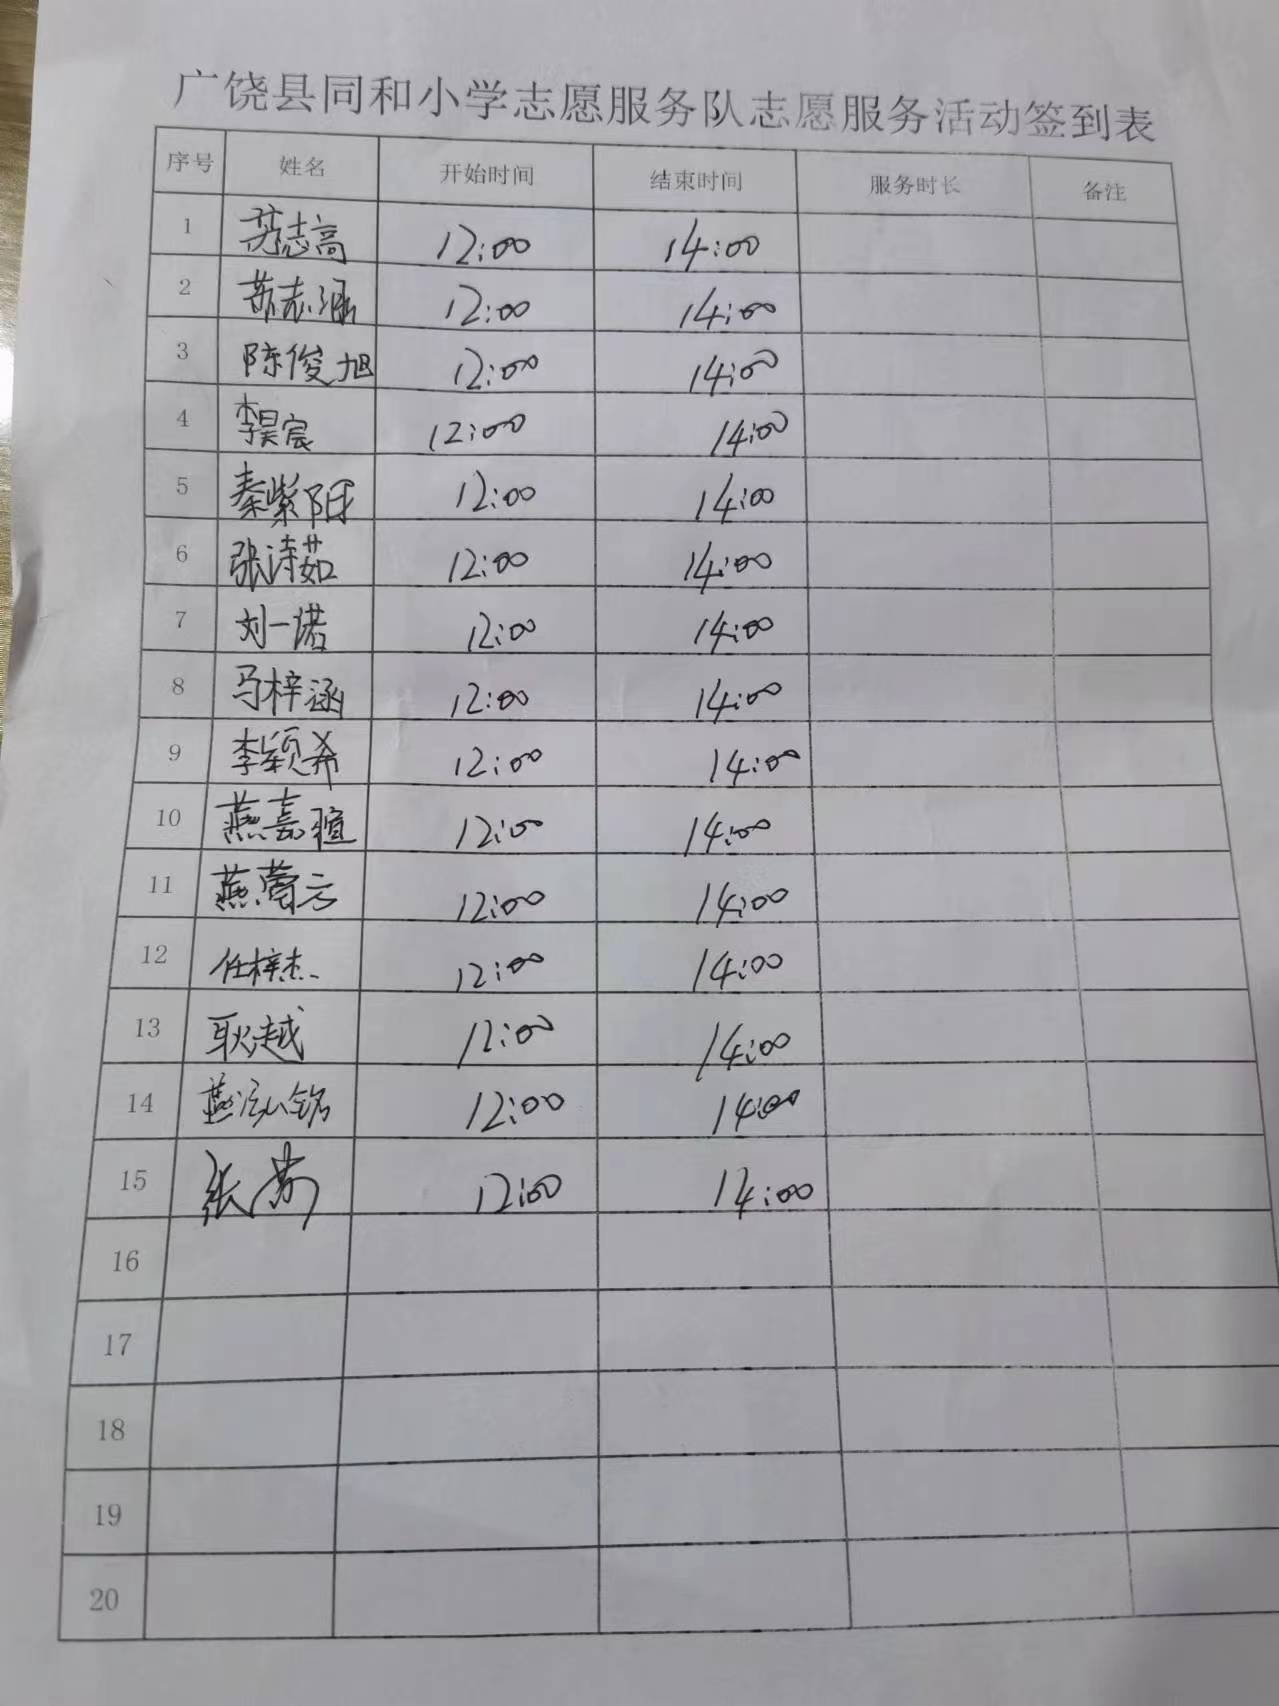 广饶县同和小学志愿服务队志愿服务活动签到表
序号 姓名 开始时间 结束时间 服务时长 备注
1 苏志高 12:00 14:00
2 苏志涵 12:00 14:00
3 陈俊旭 12:00 14:00
4 李昊宸 12:00 14:00
5 秦紫阳 12:00 14:00
6 张诗茹 12:00 14:00
7 刘一诺 12:00 14:00
8 马梓涵 12:00 14:00
9 李颖希 12:00 14:00
10 燕嘉瑄 12:00 14:00
11 12:00 14:00
12 任梓杰 12:00 14:00
13 耿越 12:00 14:00
14 燕泓铭 12:00 14:00
15 12:00 14:00
16
17
18
19
20